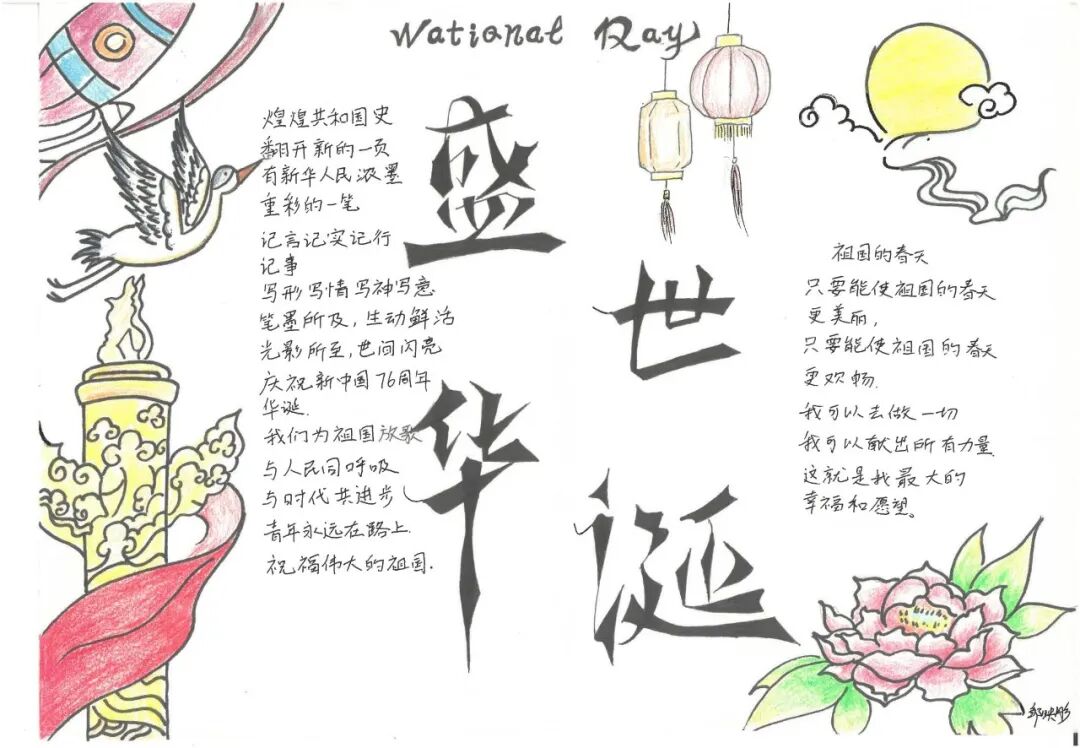 National Day
煌煌共和国史
翻开新的一页
有新华人民浓墨
重彩的一笔
记言记实记行
记事
写形写情写神写意
笔墨所及，生动鲜活
光影所至，世间闪亮
庆祝新中国76周年
华诞.
我们为祖国放歌
与人民同呼吸
与时代共进步
青年永远在路上.
祝福伟大的祖国.
盛
世
华
诞
祖国的春天
只要能使祖国的春天
更美丽，
只要能使祖国的春天
更欢畅.
我可以去做一切
我可以献出所有力量.
这就是我最大的
幸福和愿望。